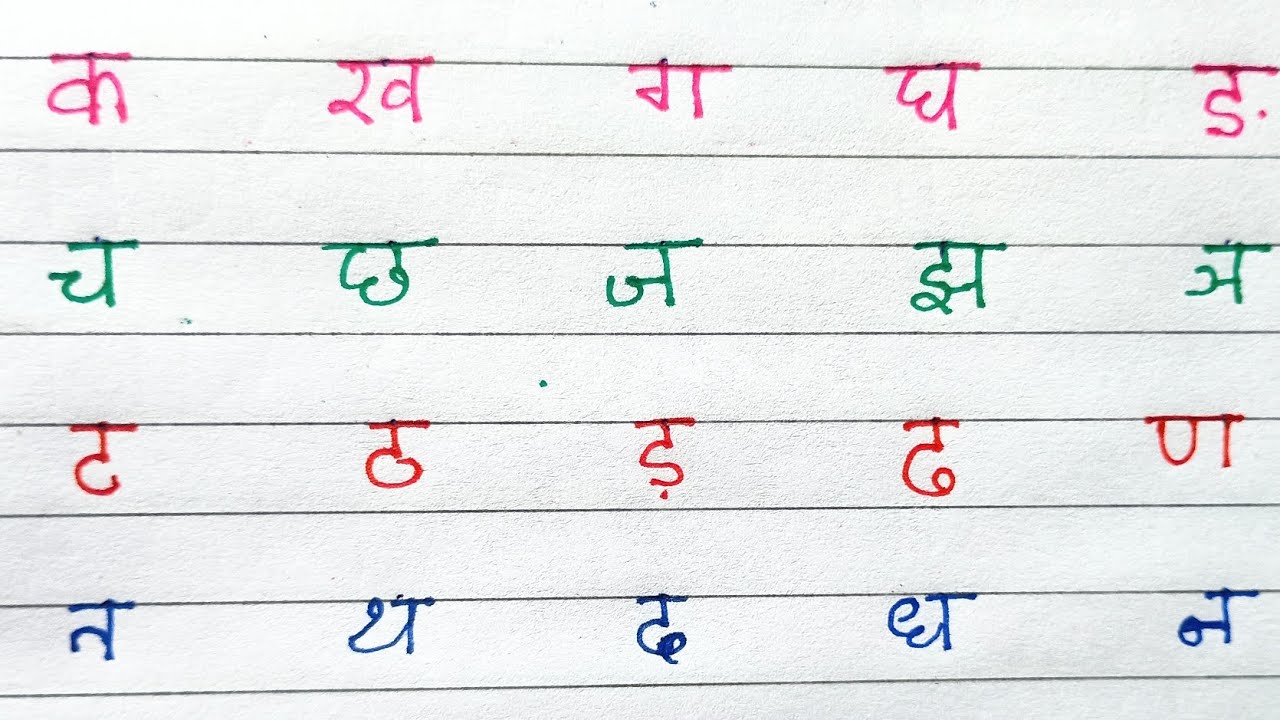 क ख ग घ ङ
च छ ज झ ञ
ट ठ ड़ ढ ण
त थ द ध न